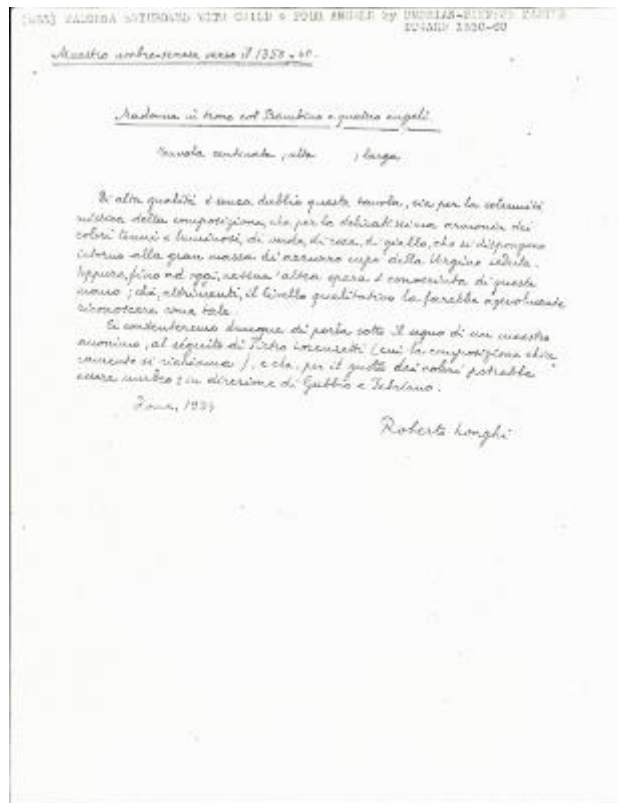 MADONNA ENTHRONED WITH CHILD & FOUR ANGELS by UMBRIAN-SIENESE MASTER
TOWARD 1350-60
Maestro umbro-senese verso il 1350-60.
Madonna in trono col Bambino e quattro angeli.
Tavola centinata, alta , larga
Di alta qualità è senza dubbio questa tavola, sia per la solennità
mistica della composizione, che per la delicatissima armonia dei
colori tenui e luminosi, di verde, di rosa, di giallo, che si dispongono
intorno alla gran massa di azzurro cupo della Vergine seduta.
Eppure, fino ad oggi, nessun'altra opera è conosciuta di questa
mano; chè, altrimenti, il livello qualitativo la farebbe agevolmente
riconoscere come tale.
Ci contenteremo dunque di porla sotto il segno di un maestro
anonimo, al seguito di Pietro Lorenzetti (cui la composizione chia-
ramente si richiama), e che, per il gusto dei colori potrebbe
essere umbro: in direzione di Gubbio e Fabriano.
Roberto Longhi